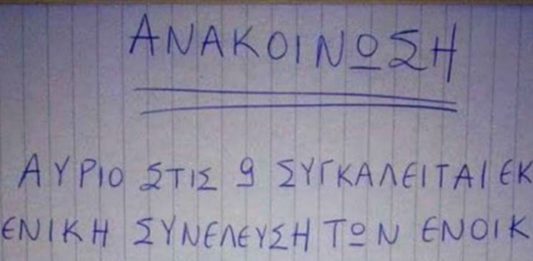 ΑΝΑΚΟΙΝΩΣΗ
ΑΥΡΙΟ ΣΤΙΣ 9 ΣΥΓΚΑΛΕΙΤΑΙ ΕΚ
ΕΝΙΚΗ ΣΥΝΕΛΕΥΣΗ ΤΩΝ ΕΝΟΙΚ